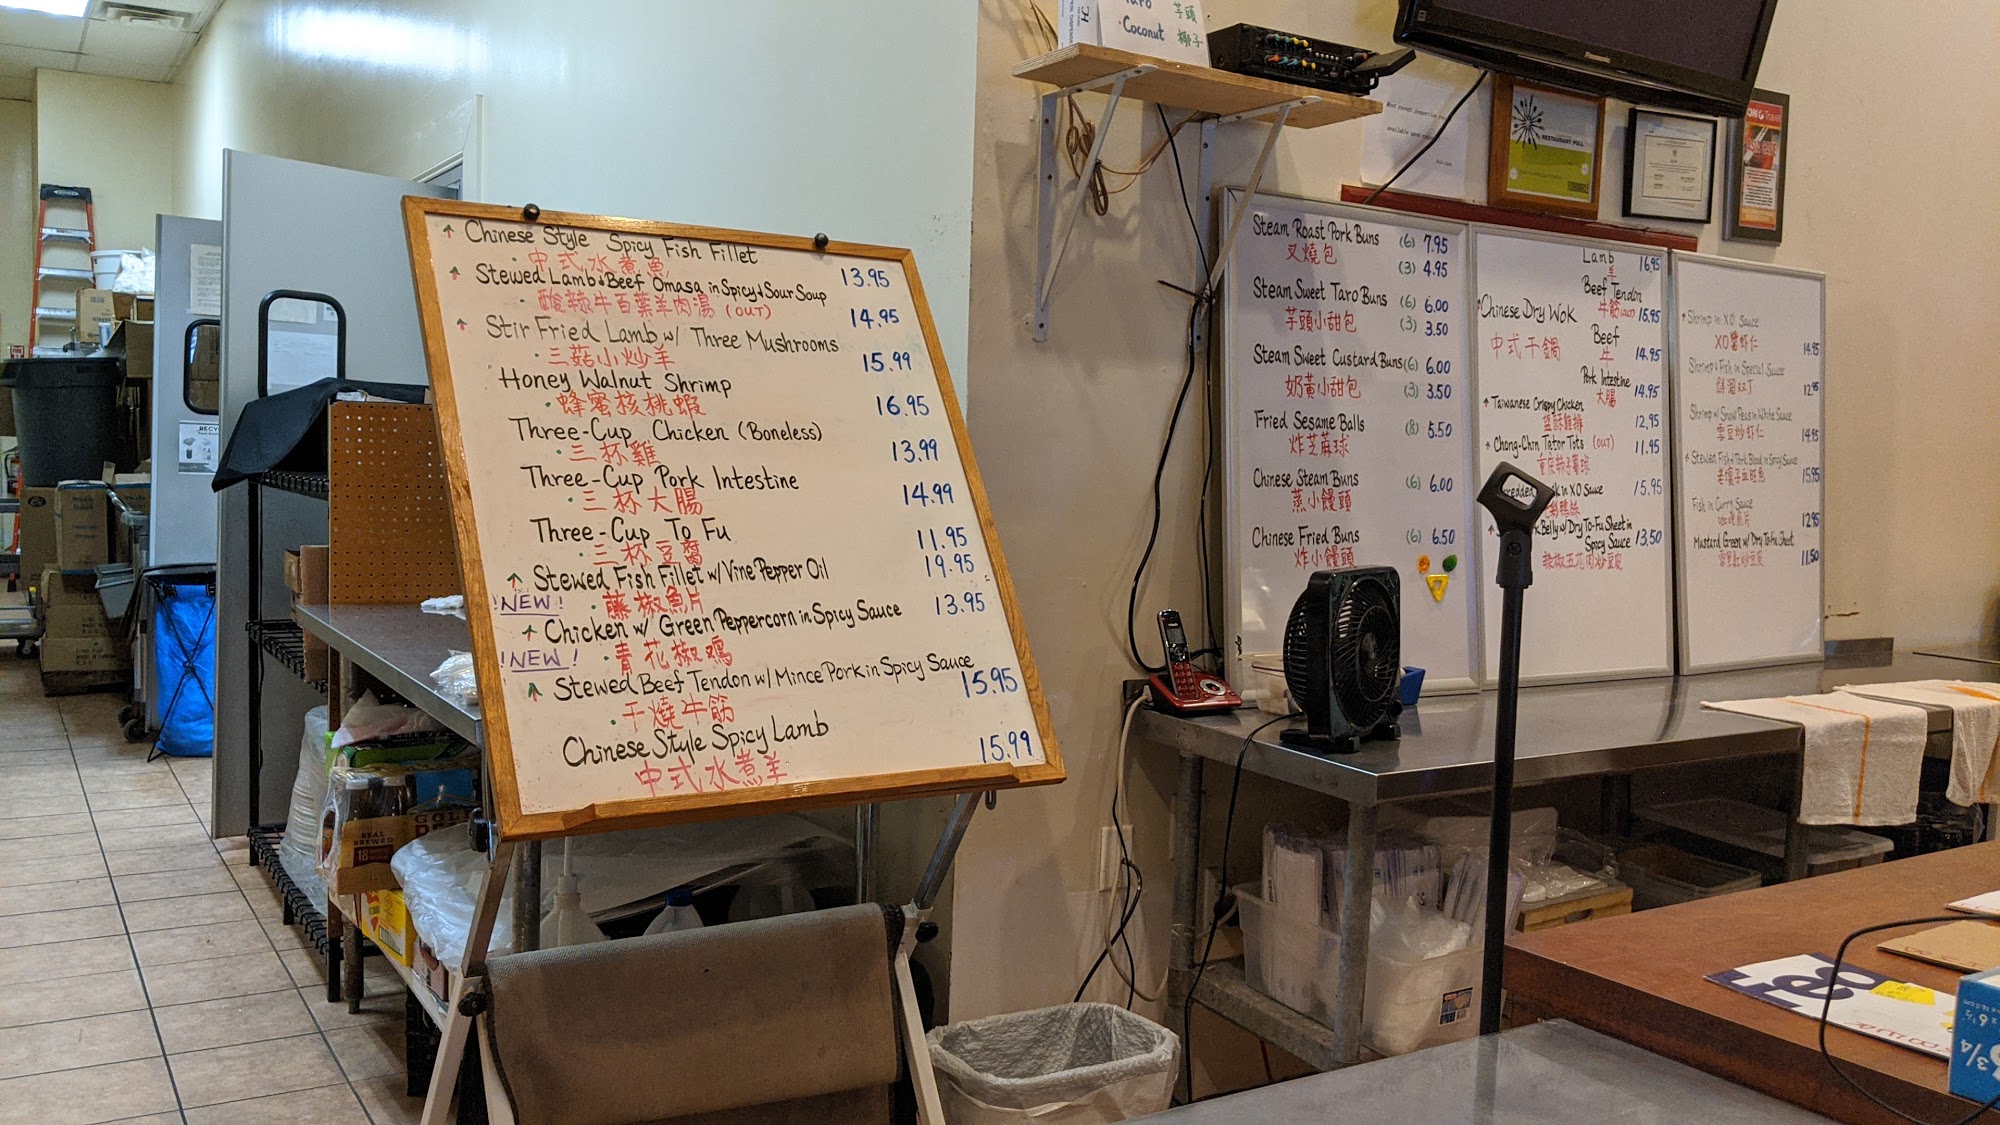 Chinese Style Spicy Fish Fillet 13.95
中式水煮魚
Stewed Lamb & Beef Omasa in Spicy & Sour Soup 14.95
酸辣牛百葉羊肉湯 (OUT)
Stir Fried Lamb w/ Three Mushrooms 15.99
三菇小炒羊
Honey Walnut Shrimp 16.95
蜂蜜核桃蝦
Three-Cup Chicken (Boneless) 13.99
三杯雞
Three-Cup Pork Intestine 14.99
三杯大腸
Three-Cup To Fu 11.95
三杯豆腐
Stewed Fish Fillet w/ Vine Pepper Oil 19.95
!NEW! 藤椒魚片
Chicken w/ Green Peppercorn in Spicy Sauce 13.95
!NEW! 青花椒鸡
Stewed Beef Tendon w/ Mince Pork in Spicy Sauce 15.95
干燒牛筋
Chinese Style Spicy Lamb 15.99
中式水煮羊
Taro 芋頭
Coconut 椰子
RESTAURANT POLL
Steam Roast Pork Buns (6) 7.95
叉燒包 (3) 4.95
Steam Sweet Taro Buns (6) 6.00
芋頭小甜包 (3) 3.50
Steam Sweet Custard Buns (6) 6.00
奶黃小甜包 (3) 3.50
Fried Sesame Balls (8) 5.50
炸芝蔴球
Chinese Steam Buns (6) 6.00
蒸小饅頭
Chinese Fried Buns (6) 6.50
炸小饅頭
Lamb 16.95
羊
Beef Tendon
牛筋(OUT) 15.95
Chinese Dry Wok
中式干鍋
Beef
牛 14.95
Pork Intestine
大腸 14.95
Taiwanese Crispy Chicken 12.95
Chong-Chin Tator Tots (OUT) 11.95
in XO Sauce 15.95
Belly w/ Dry To-Fu Sheet in
Spicy Sauce 13.50
辣椒五花肉炒豆皮
Shrimp in XO Sauce
XO醬虾仁 14.95
Shrimp & Fish in Special Sauce
12.95
Shrimp w/ Snow Peas in White Sauce
雪豆炒虾仁 14.95
Stewed Fish & Pork Blood in Spicy Sauce
15.95
Fish in Curry Sauce
咖哩魚片 12.95
Mustard Green w/ Dry To-Fu Sheet
雪里紅炒豆皮 11.50